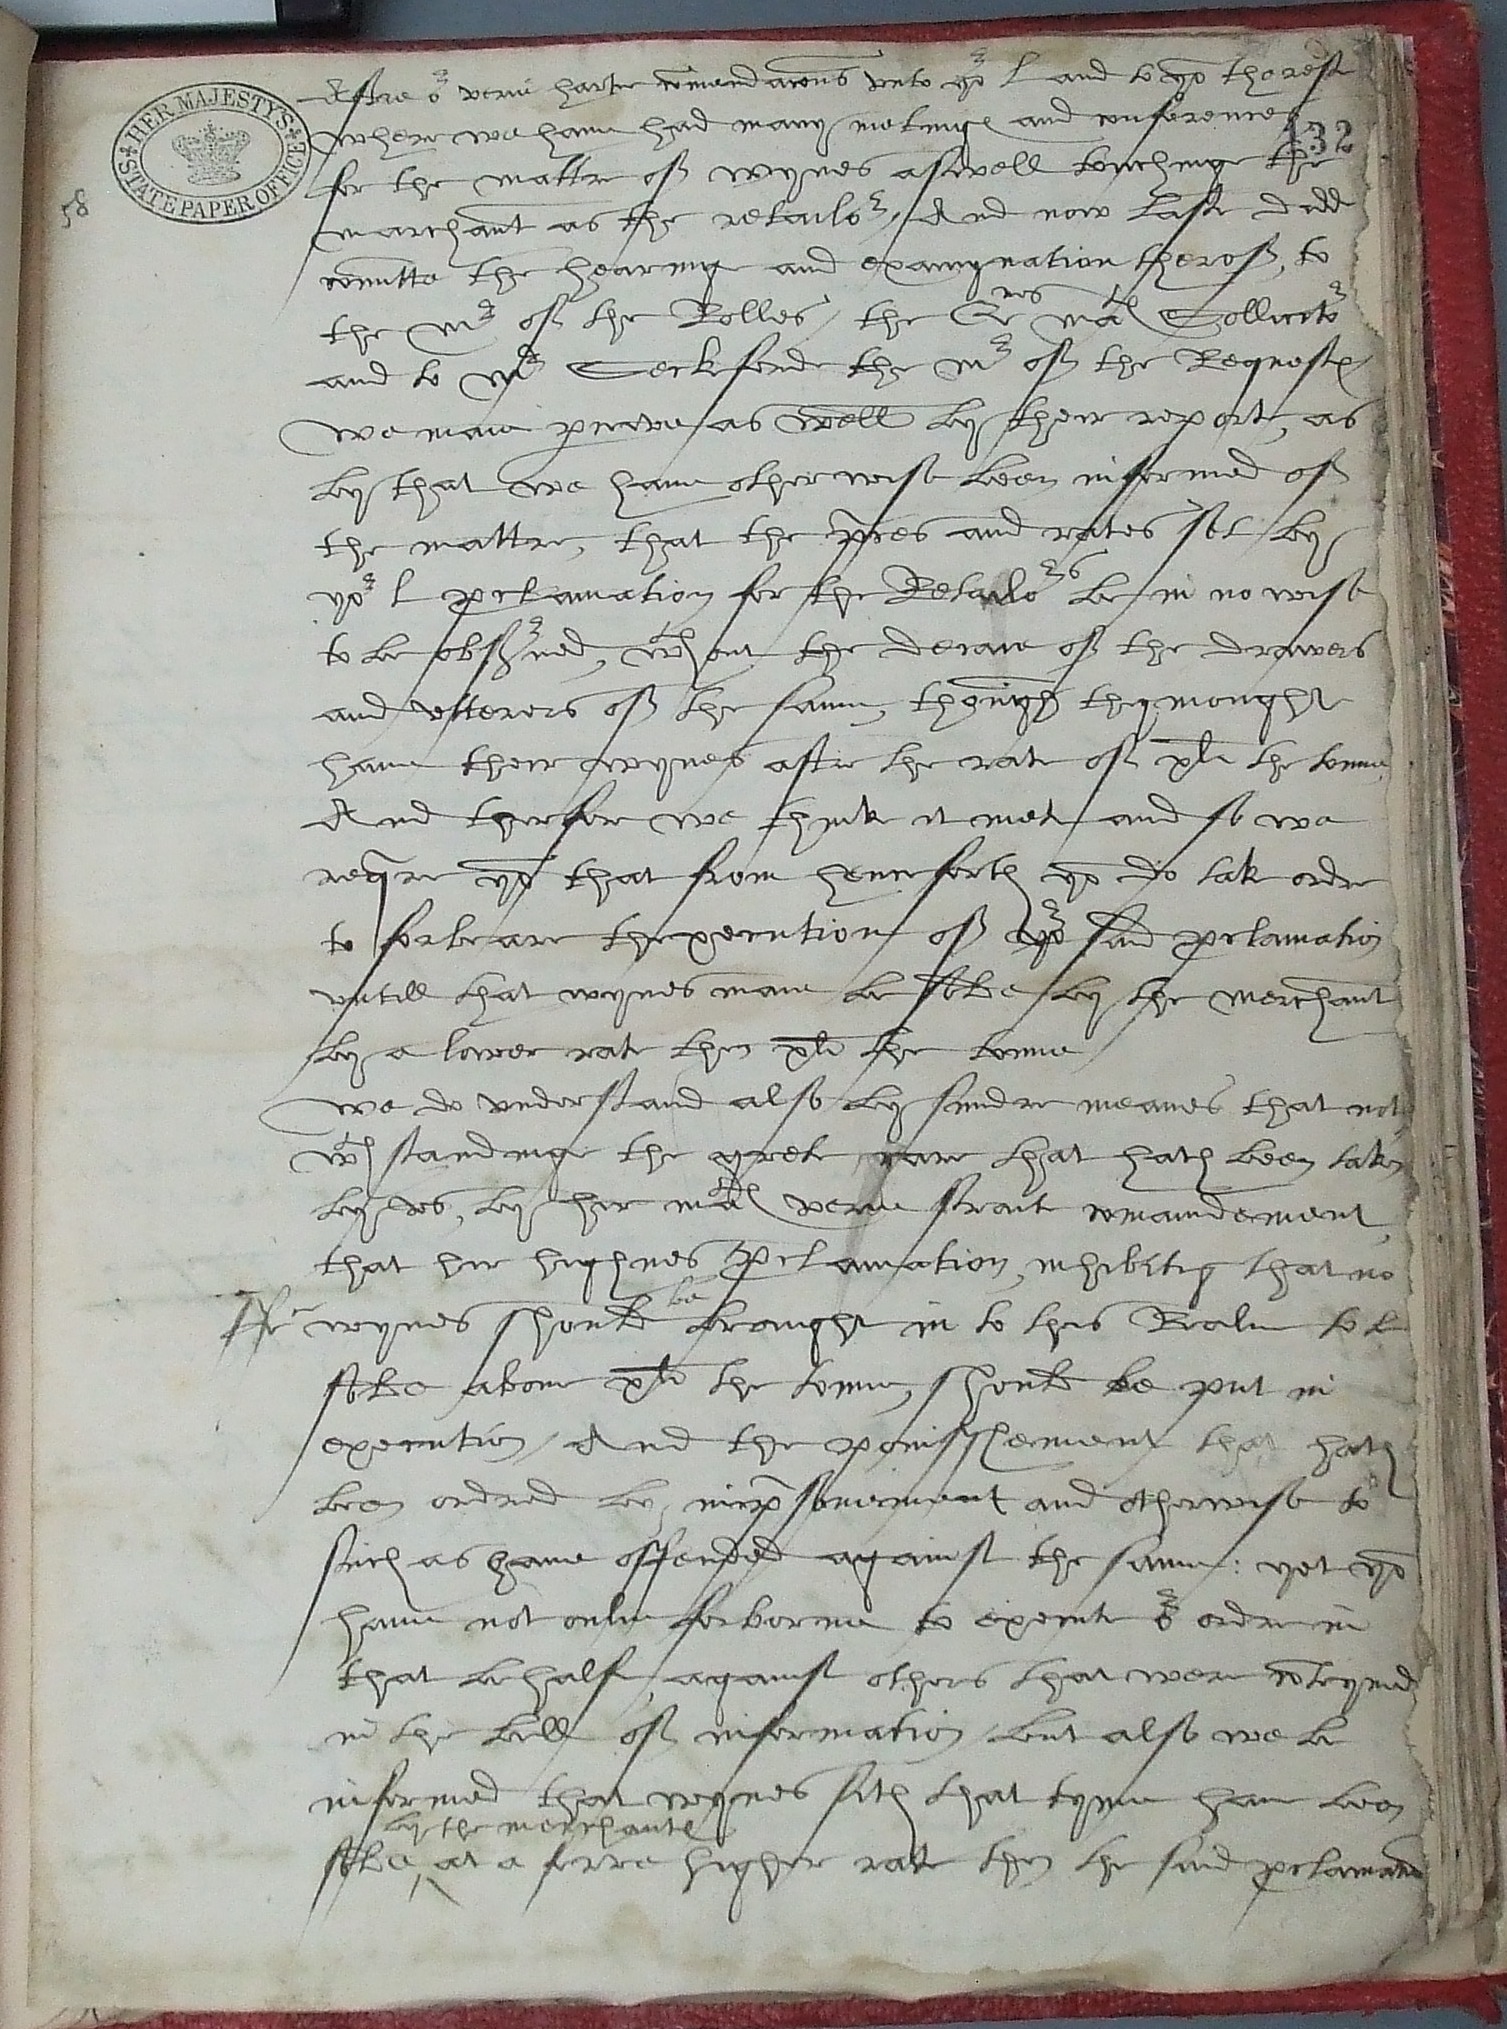 HER MAJESTY'S STATE PAPER OFFICE
58
132
Aftre or verie hartie comendacions vnto yor L and to yo the rest
where we haue had many metings and conferences
for the mattre of wynes aswell touchinge the
marchant as the retailor, And now last dedd
comitte the hearing and examynation therof, to
the Mr of the Rolles, the Quenes Matꝭ Sollicitor
and to Mr Seckforde the Mr of the Requestꝭ
We maie perceive as well by their report, as
by that we haue otherwise been informed of
the mattre, that the prices and rates set by
yor L proclamation for the Retailors be in no wise
to be obserued, wthout the decaie of the drawers
and vtterers of the same, though they mought
haue their wynes aftre the rate of xli the tonne,
And therfore we think it mete and so we
requere yo that from henceforth yo do tak ordre
to forbeare thexecution of yor said proclamation
vntill that wynes maie be solde by the merchant
by a lower rate then xli the tonne
We do vnderstand also by sundre meanes that not
wthstandinge the grete care that hath been taken
by vs, by her Matꝭ verie strait comaundement,
that her highnes proclamation, inhibiting that no
wynes should be brought in to this Realm to be
solde aboue xli the tonne, should be put in
execution, And the ponisshement that hath
been ordred by imprisonement and otherwise to
such as haue offended against the same: yet yo
haue not onlie forborne to execute or ordre in
that behalf, against others that were conteyned
in the bill of information, but also we be
informed that wynes sith that tyme haue been
by the merchantꝭ
solde, at a ferre higher rate then the said proclamation